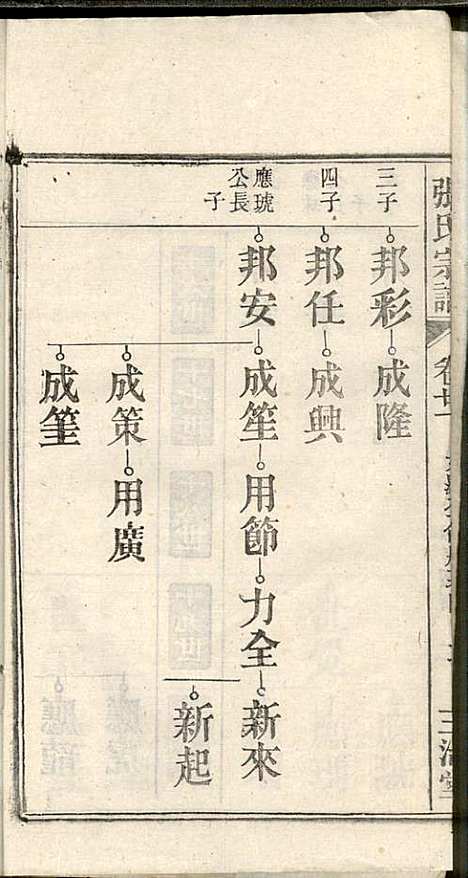 張氏宗譜
卷廿一
三子
邦彩
成隆
四子
邦任
成興
應琥
公長
子
邦安
成笙
用節
力全
新來
新起
成策
用廣
成筆